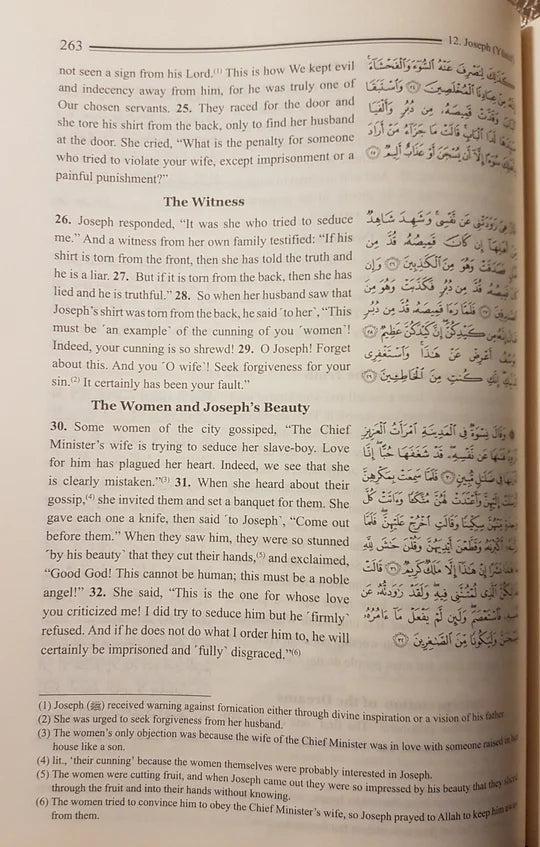 263
12. Joseph
not seen a sign from his Lord.(1) This is how We kept evil
and indecency away from him, for he was truly one of
Our chosen servants. 25. They raced for the door and
she tore his shirt from the back, only to find her husband
at the door. She cried, “What is the penalty for someone
who tried to violate your wife, except imprisonment or a
painful punishment?”
The Witness
26. Joseph responded, “It was she who tried to seduce
me.” And a witness from her own family testified: “If his
shirt is torn from the front, then she has told the truth and
he is a liar. 27. But if it is torn from the back, then she has
lied and he is truthful.” 28. So when her husband saw that
Joseph’s shirt was torn from the back, he said ´to her`, “This
must be ´an example` of the cunning of you ´women`!
Indeed, your cunning is so shrewd! 29. O Joseph! Forget
about this. And you ´O wife`! Seek forgiveness for your
sin.(2) It certainly has been your fault.”
The Women and Joseph’s Beauty
30. Some women of the city gossiped, “The Chief
Minister’s wife is trying to seduce her slave-boy. Love
for him has plagued her heart. Indeed, we see that she
is clearly mistaken.”(3) 31. When she heard about their
gossip,(4) she invited them and set a banquet for them. She
gave each one a knife, then said ´to Joseph`, “Come out
before them.” When they saw him, they were so stunned
´by his beauty` that they cut their hands,(5) and exclaimed,
“Good God! This cannot be human; this must be a noble
angel!” 32. She said, “This is the one for whose love
you criticized me! I did try to seduce him but he ´firmly`
refused. And if he does not do what I order him to, he will
certainly be imprisoned and ´fully` disgraced.”(6)
كَذَٰلِكَ لِنَصْرِفَ عَنْهُ ٱلسُّوٓءَ وَٱلْفَحْشَآءَ
مِنْ عِبَادِنَا ٱلْمُخْلَصِينَ ٢٤ وَٱسْتَبَقَا
وَقَدَّتْ قَمِيصَهُۥ مِن دُبُرٍ وَأَلْفَيَا
لَدَا ٱلْبَابِ قَالَتْ مَا جَزَآءُ مَنْ أَرَادَ
سُوٓءًا إِلَّآ أَن يُسْجَنَ أَوْ عَذَابٌ أَلِيمٌ ٢٥
رَٰوَدَتْنِى عَن نَّفْسِى وَشَهِدَ شَاهِدٌ
إِن كَانَ قَمِيصُهُۥ قُدَّ مِن
فَصَدَقَتْ وَهُوَ مِنَ ٱلْكَٰذِبِينَ ٢٦ وَإِن
قَمِيصُهُۥ قُدَّ مِن دُبُرٍ فَكَذَبَتْ وَهُوَ مِنَ
٢٧ فَلَمَّا رَءَا قَمِيصَهُۥ قُدَّ مِن دُبُرٍ
مِن كَيْدِكُنَّ إِنَّ كَيْدَكُنَّ عَظِيمٌ ٢٨
أَعْرِضْ عَنْ هَٰذَا وَٱسْتَغْفِرِى
إِنَّكِ كُنتِ مِنَ ٱلْخَاطِـِٔينَ ٢٩
۞ وَقَالَ نِسْوَةٌ فِى ٱلْمَدِينَةِ ٱمْرَأَتُ ٱلْعَزِيزِ
عَن نَّفْسِهِۦ قَدْ شَغَفَهَا حُبًّا إِنَّا
فِى ضَلَٰلٍ مُّبِينٍ ٣٠ فَلَمَّا سَمِعَتْ بِمَكْرِهِنَّ
إِلَيْهِنَّ وَأَعْتَدَتْ لَهُنَّ مُتَّكَـًٔا وَءَاتَتْ كُلَّ
مِّنْهُنَّ سِكِّينًا وَقَالَتِ ٱخْرُجْ عَلَيْهِنَّ فَلَمَّا
أَكْبَرْنَهُۥ وَقَطَّعْنَ أَيْدِيَهُنَّ وَقُلْنَ حَٰشَ لِلَّهِ
بَشَرًا إِنْ هَٰذَآ إِلَّا مَلَكٌ كَرِيمٌ ٣١ قَالَتْ
ٱلَّذِى لُمْتُنَّنِى فِيهِ وَلَقَدْ رَٰوَدتُّهُۥ عَن
فَٱسْتَعْصَمَ وَلَئِن لَّمْ يَفْعَلْ مَآ ءَامُرُهُۥ
وَلَيَكُونًا مِّنَ ٱلصَّٰغِرِينَ ٣٢
(1) Joseph (ﷺ) received warning against fornication either through divine inspiration or a vision of his father.
(2) She was urged to seek forgiveness from her husband.
(3) The women’s only objection was because the wife of the Chief Minister was in love with someone raised in her
house like a son.
(4) lit., ‘their cunning’ because the women themselves were probably interested in Joseph.
(5) The women were cutting fruit, and when Joseph came out they were so impressed by his beauty that they sliced
through the fruit and into their hands without knowing.
(6) The women tried to convince him to obey the Chief Minister’s wife, so Joseph prayed to Allah to keep him away
from them.